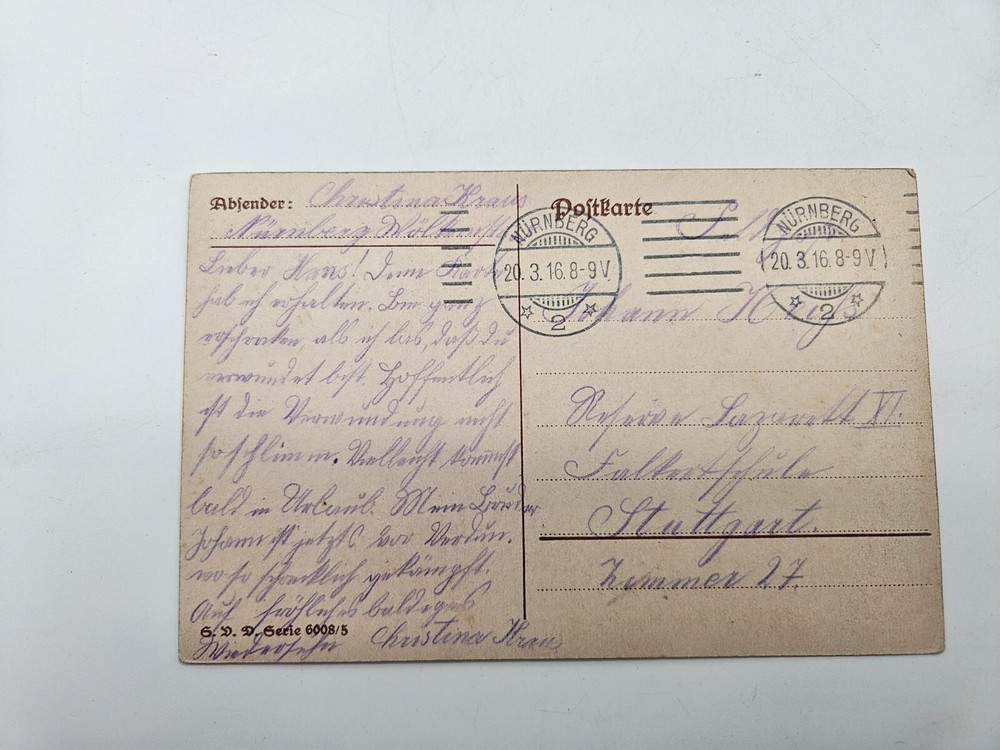 Absender: Christina Kraus
Nürnberg
Lieber Hans! Deine Karte
hab ich erhalten. Bin ganz
erschrocken, als ich las, daß du
verwundet bist. Hoffentlich
ist die Verwundung nicht
so schlimm. Vielleicht kommst
bald in Urlaub. Mein Bruder
Johann ist jetzt vor Verdun.
wo so schrecklich gekämpft.
Auf fröhliches baldiges
S. V. D. Serie 6008/5
Wiedersehn Christina Kraus
Postkarte
NÜRNBERG
20.3.16.8-9V
2
NÜRNBERG
20.3.16.8-9V
2
Johann
Reserve Lazarett XI.
Falkertschule
Stuttgart.
Zimmer 27.